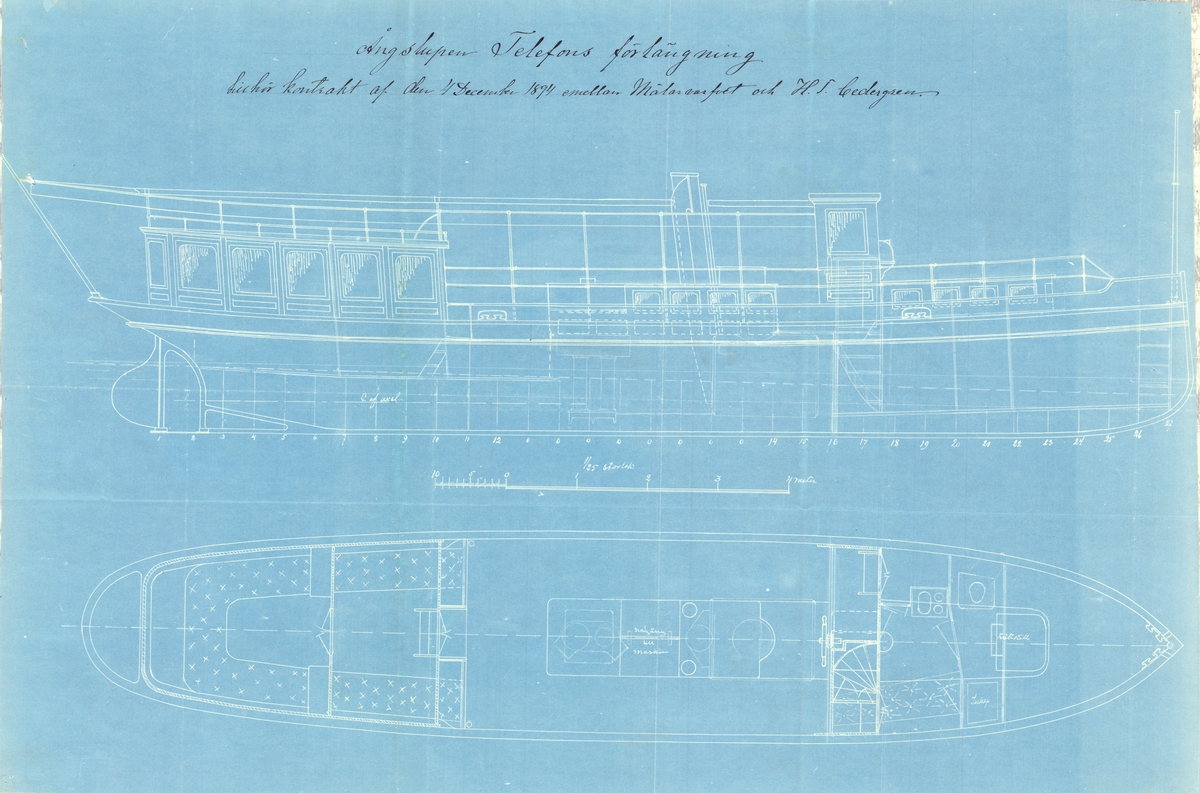 Ångslupen Telefons förlängning
hichör kontrakt af den 4 December 1894 emellan Mälarvarfvet och H. T. Cedergren.
C af axel
1 2 3 4 5 6 7 8 9 10 11 12 0 0 0 0 0 0 0 0 0 14 15 16 17 18 19 20 21 22 23 24 25 26 27
1/25 storlek
10 5 0 1 2 3 4 meter
Maskin